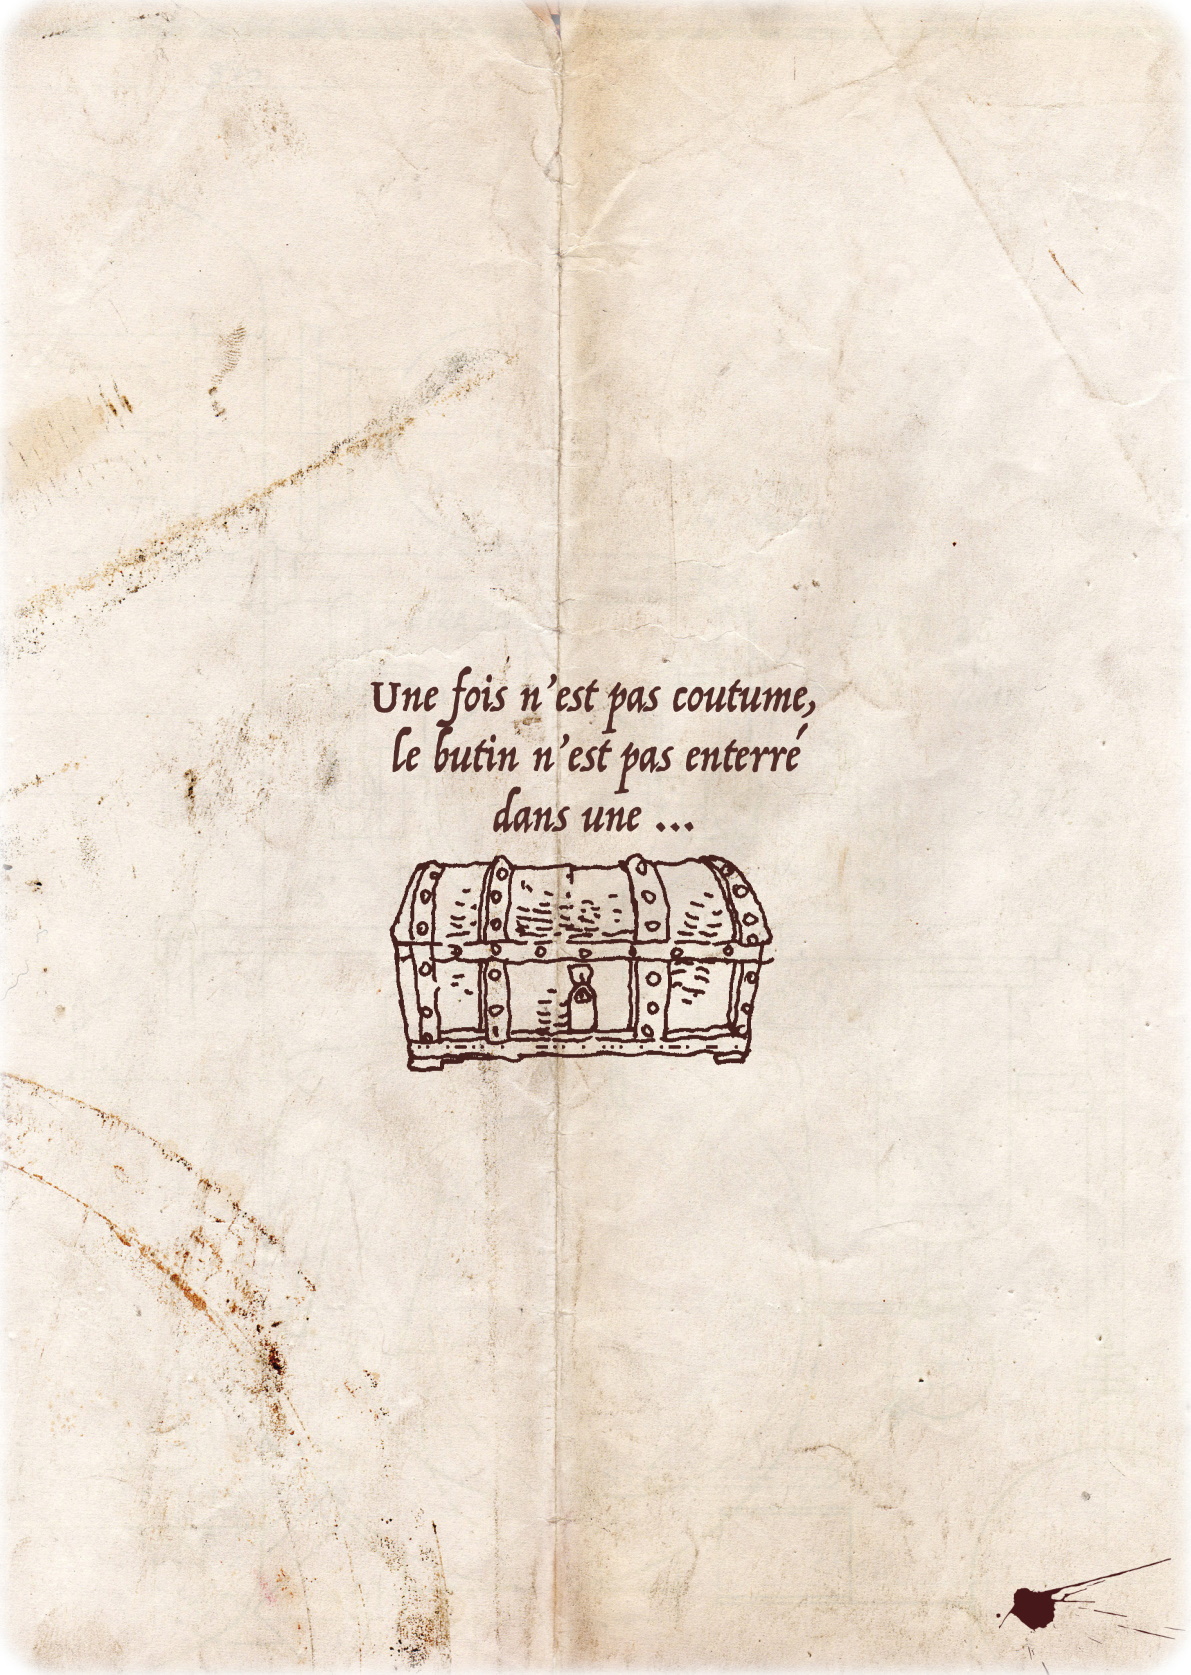 Une fois n'est pas coutume,
le butin n'est pas enterré
dans une ...